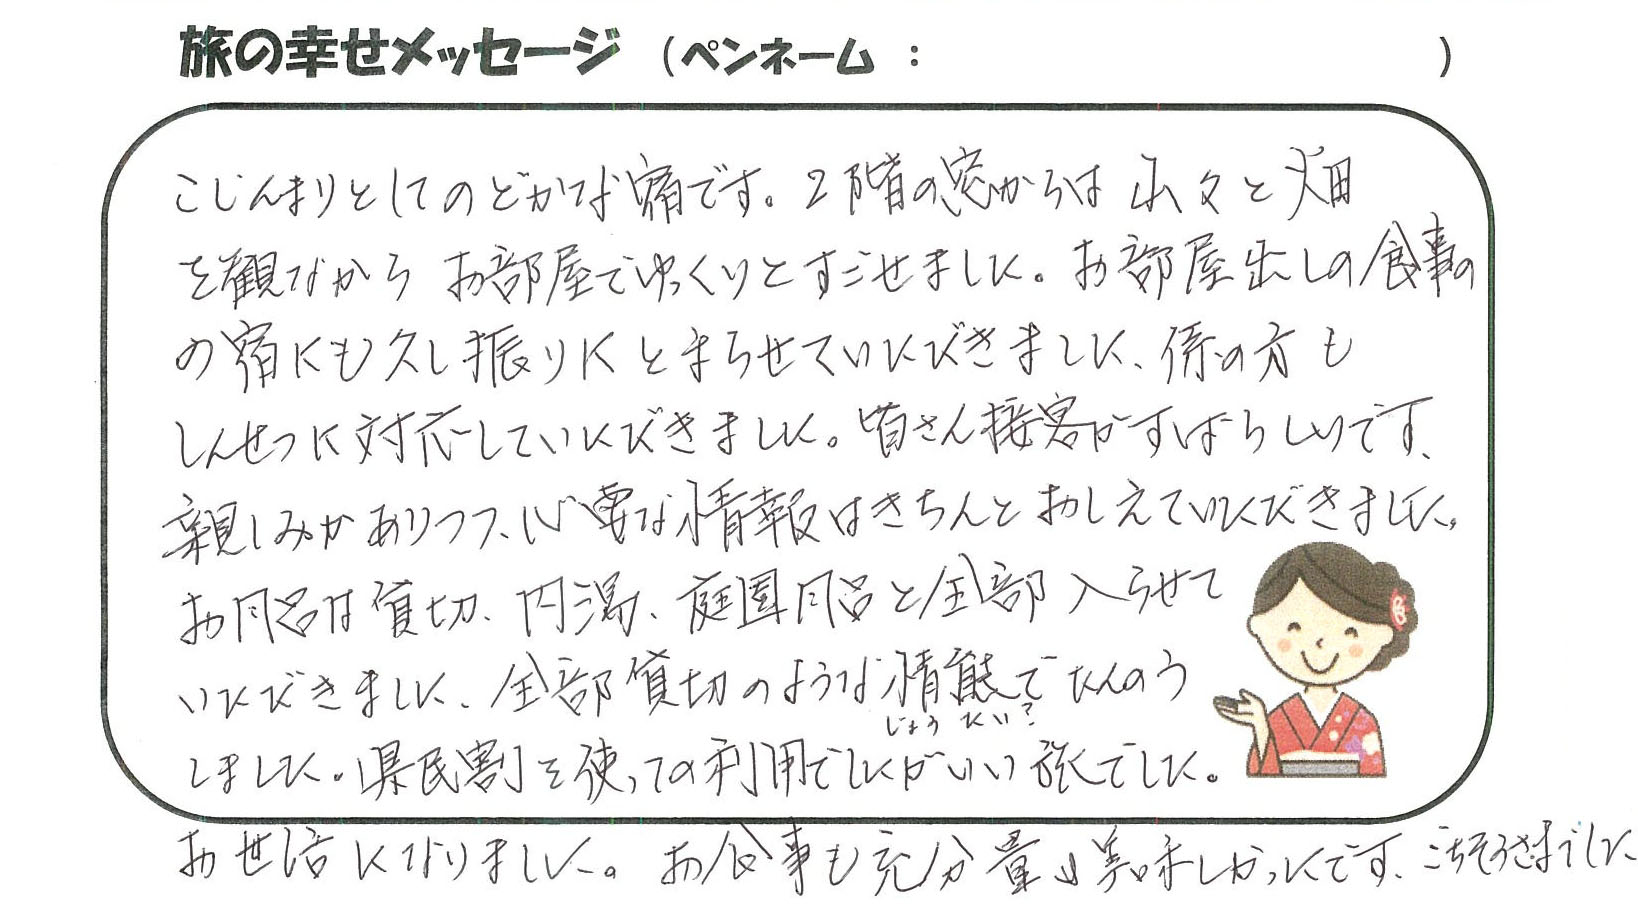 旅の幸せメッセージ (ペンネーム : )
こじんまりとしてのどかな宿です。2階の窓からは山々と畑
を観ながら お部屋でゆっくりとすごせました。お部屋出しの食事の
の宿にも久し振りにとまらせていただきました、係の方も
しんせつに対応していただきました。皆さん接客がすばらしいです、
親しみがありつつ、必要な情報はきちんとおしえていただきました。
お風呂は貸切、内湯、庭園風呂と全部入らせて
いただきました、全部貸切のような情態でたんのう
じょうたい?
しました。県民割を使っての利用でしたがいい旅でした。
お世話になりました。お食事も充分量も美味しかったです、ごちそうさまでした